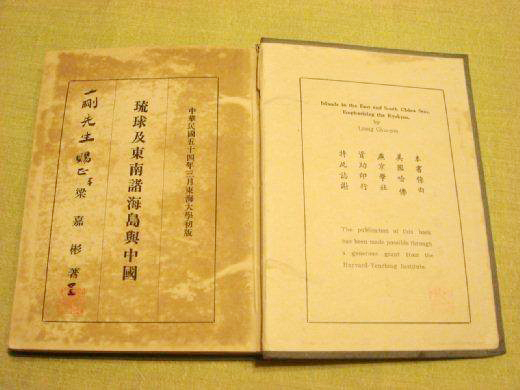 中華民國五十四年三月東海大學初版
琉球及東南諸海島與中國
梁嘉彬著
一剛先生賜正
Islands in the East and South China Seas,
Emphasizing the Ryukyus.
by
Liang Chia-pin
本書係由
美國哈佛
燕京學社
資助印行
特此誌謝
The publication of this book
has been made possible through
a generous grant from the
Harvard-Yenching Institute.